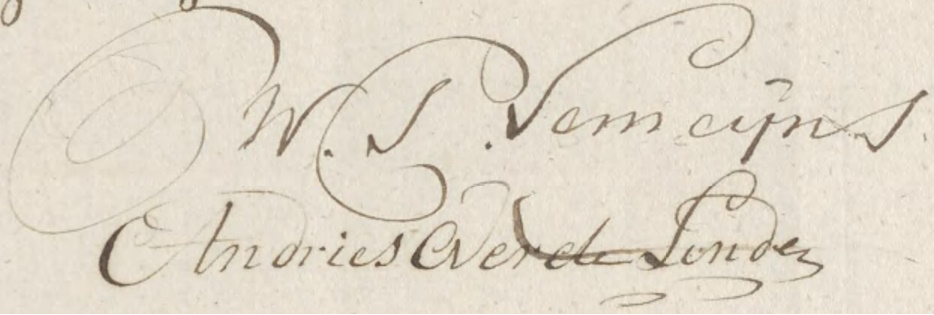 W. S. Vemeijns
Andries Everd Linde